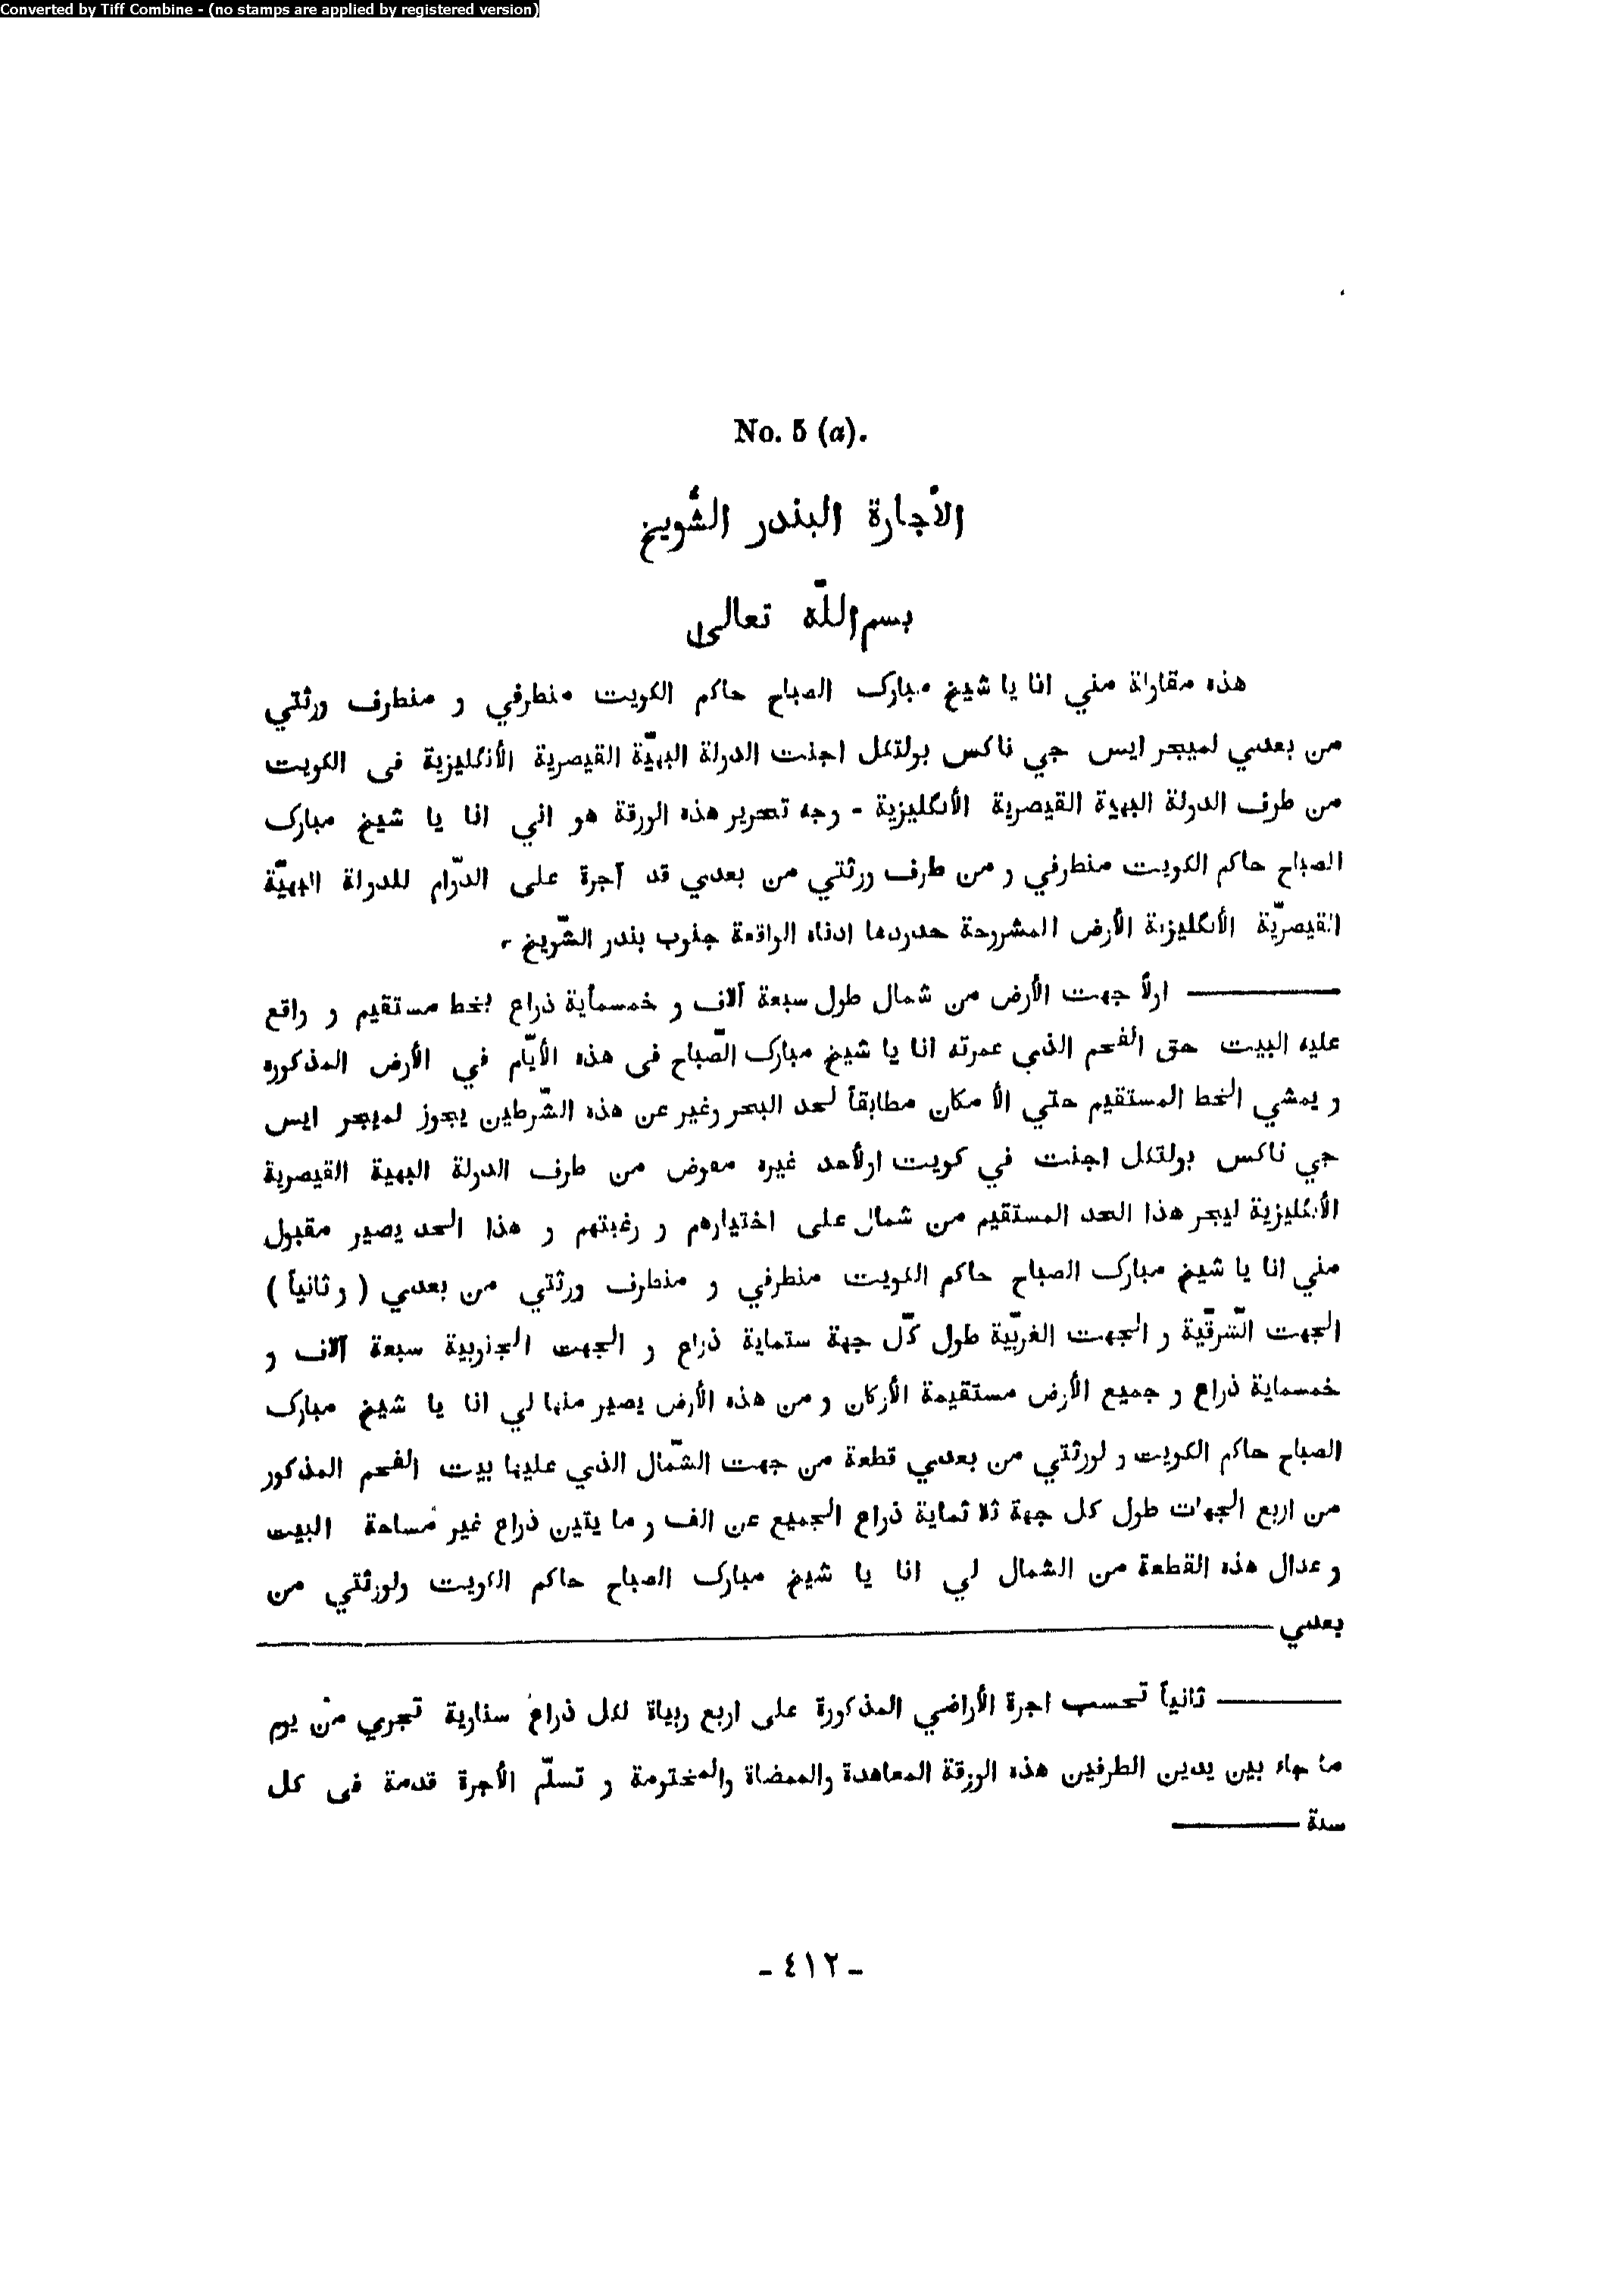 Converted by Tiff Combine - (no stamps are applied by registered version)
No. 5 (a).
الأجارة البندر الشُّويخ
بسم اللّه تعالى
هذه مقاولة مني انا يا شيخ مبارك الصباح حاكم الكويت منطرفي و منطرف ورثتي
من بعدي لميجر ايس جي ناكس بولتكل اجنت الدولة البهيّة القيصرية الأنكليزية فى الكويت
من طرف الدولة البهية القيصرية الأنگليزية - وجه تحرير هذه الورقة هو اني انا يا شيخ مبارك
الصباح حاكم الكويت منطرفي و من طرف ورثتي من بعدي قد آجرة على الدوّام للدولة البهيّة
القيصريّة الأنكليزية الأرض المشروحة حدودها ادناه الواقعة جنوب بندر الشّويخ -
اولاً جهت الأرض من شمال طول سبعة آلاف و خمسمأية ذراع بخط مستقيم و واقع
عليه البيت حق الفحم الذي عمرته انا يا شيخ مبارك الصّباح فى هذه الأيّام في الأرض المذكوره
و يمشي الخط المستقيم حتي الأ مكان مطابقاً لحد البحر وغير عن هذه الشّرطين يجوز لميجر ايس
جي ناكس بولتكل اجنت في كويت اولأحد غيره مفوض من طرف الدولة البهية القيصرية
الأنكليزية ليجر هذا الحد المستقيم من شمال على اختيارهم و رغبتهم و هذا الحد يصير مقبول
مني انا يا شيخ مبارك الصباح حاكم الكويت منطرفي و منطرف ورثتي من بعدي ( و ثانياً )
الجهت الشّرقيّة و الجهت الغربّية طول كّل جهة ستماية ذراع و الجهت الجنوبية سبعة آلاف و
خمسماية ذراع و جميع الأرض مستقيمة الأركان و من هذه الأرض يصير منها لي انا يا شيخ مبارك
الصباح حاكم الكويت و لورثتي من بعدي قطعة من جهت الشّمال الذي عليها بيت الفحم المذكور
من اربع الجهات طول كل جهة ثلا ثماية ذراع الجميع عن الف و ما يتين ذراع غير مُساحة البيت
و عدال هذه القطعة من الشمال لي انا يا شيخ مبارك الصباح حاكم الكويت ولورثتي من
بعدي
ثانياً تحسب اجرة الأراضي المذكورة على اربع ربياة لكل ذراع سناوية تجري من يوم
ما جاء بين يدين الطرفين هذه الورقة المعاهدة والممضاة والمختومة و تسلّم الأجرة قدمة فى كل
سنة
- ٤١٢ -